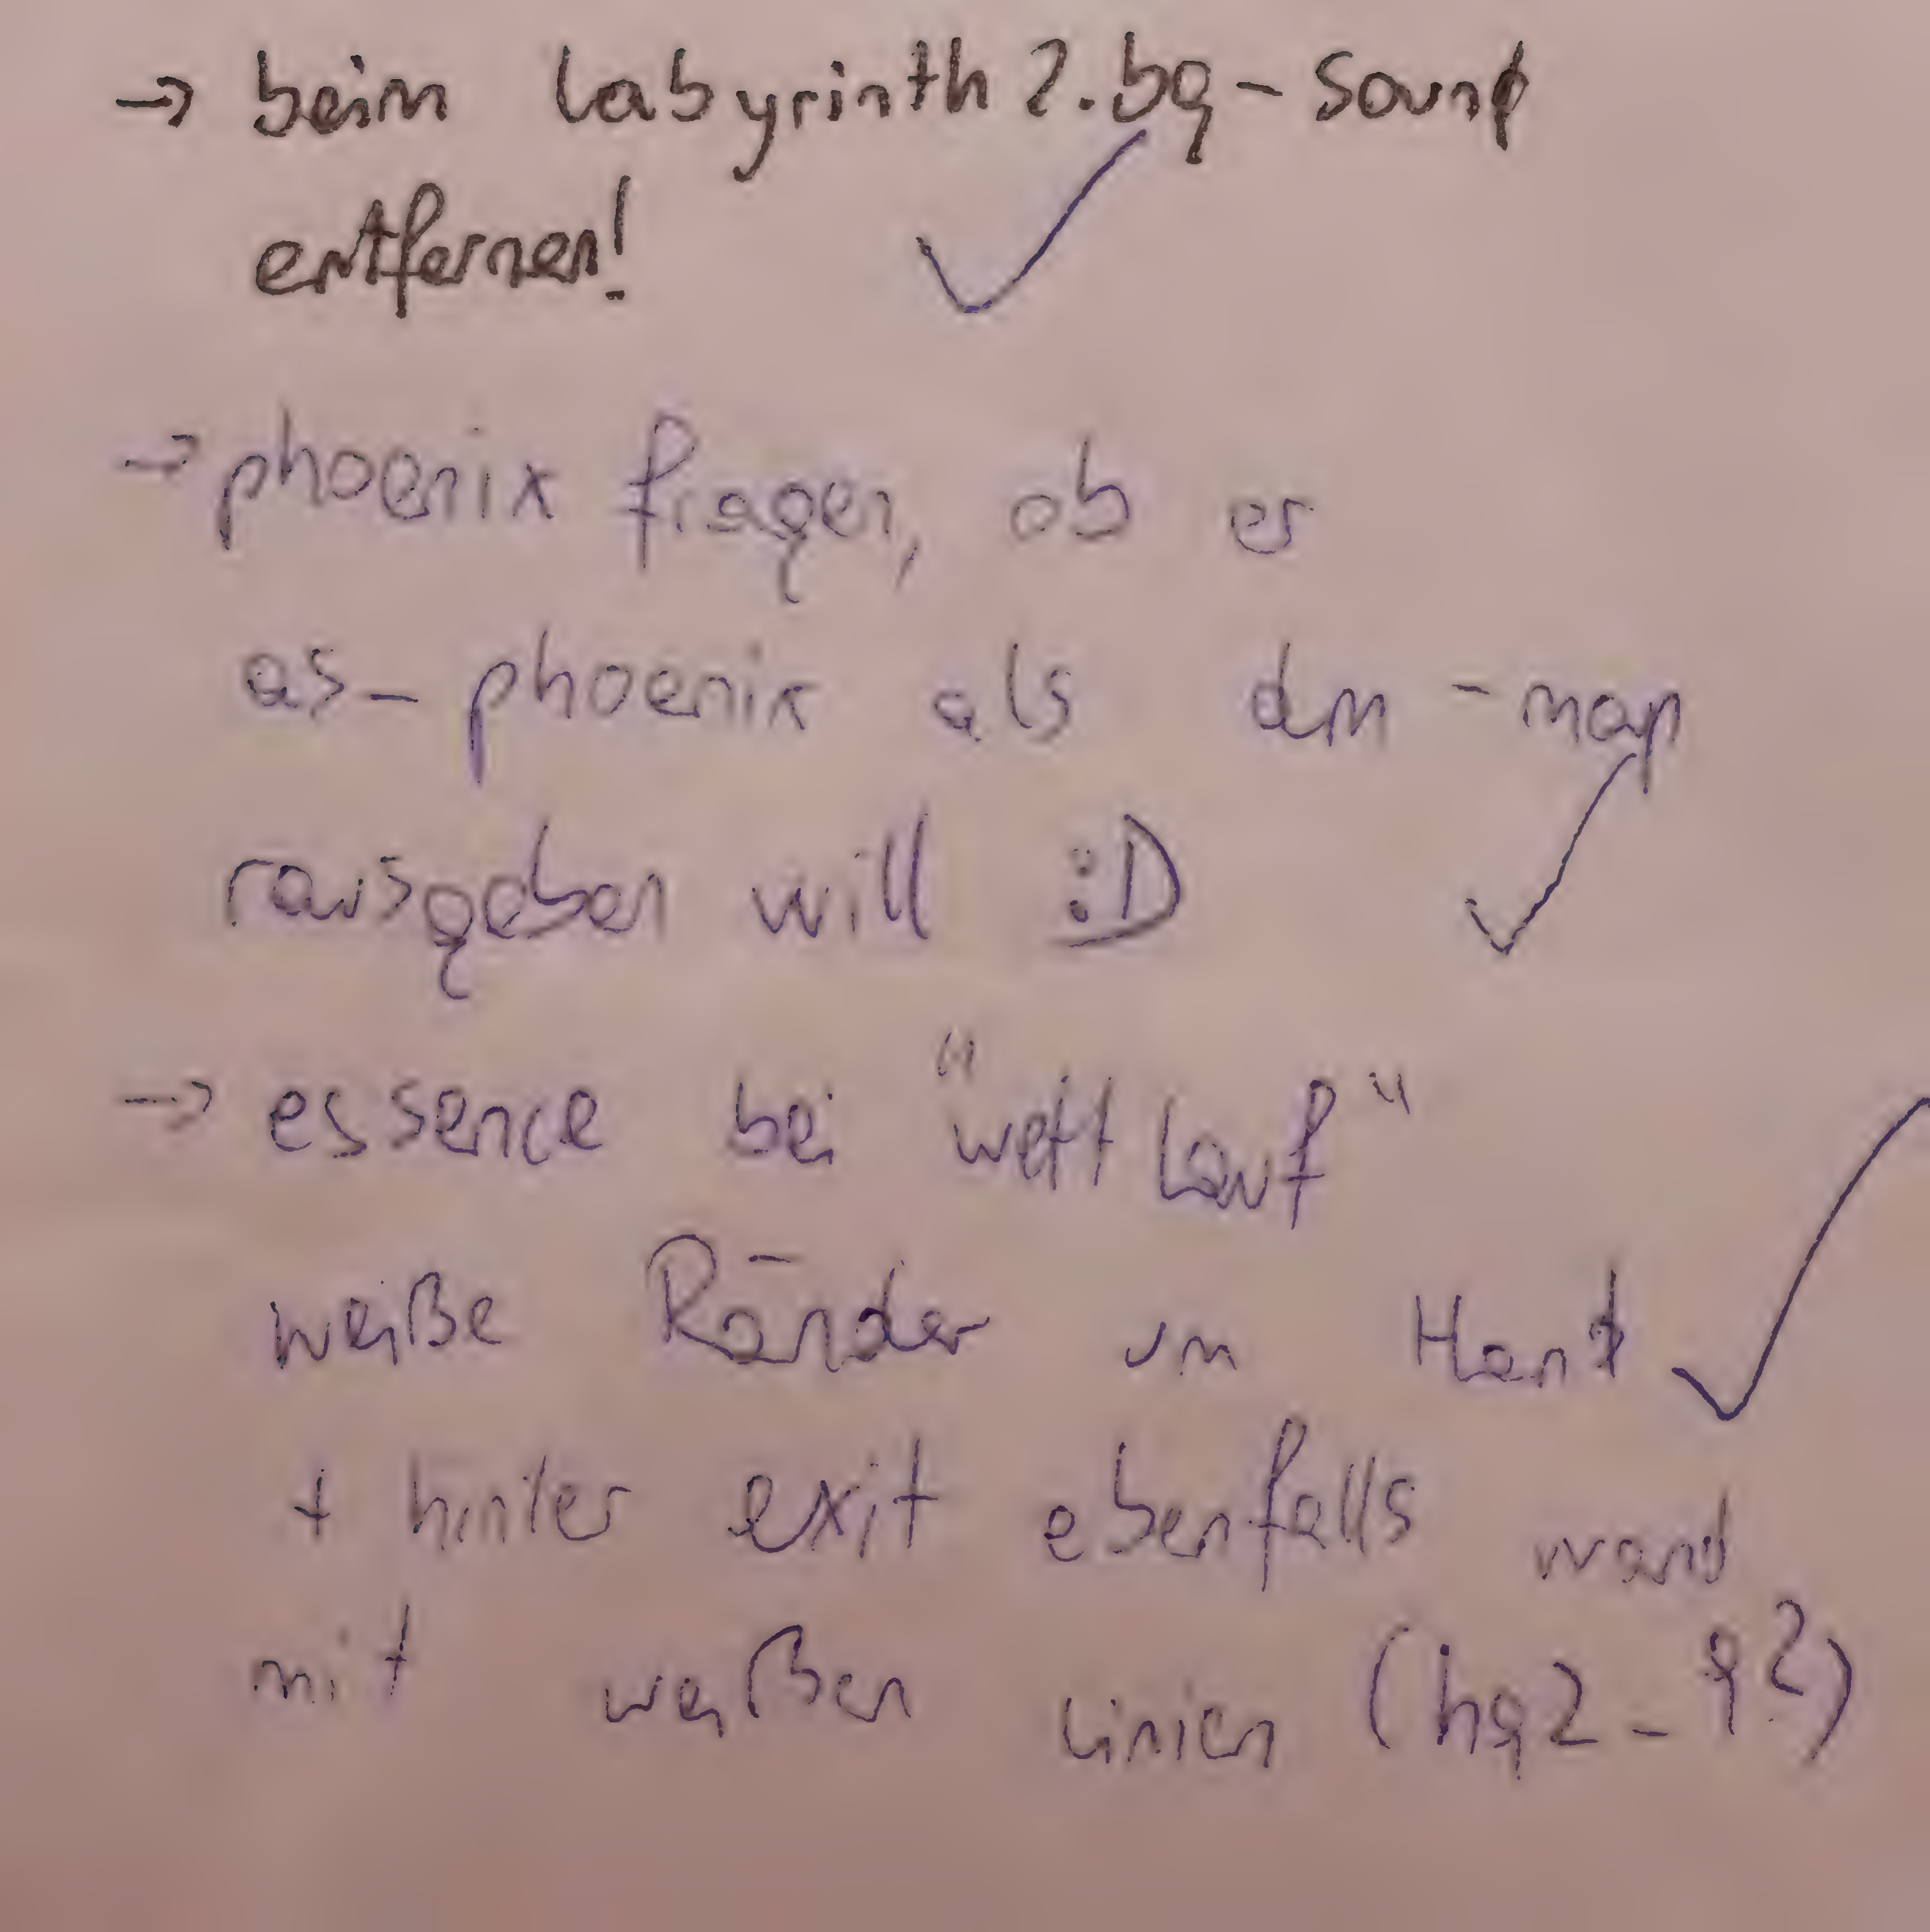 → beim Labyrinth 2.bg-Sound
entfernen!
→ phoenix fragen, ob er
as-phoenix als dm-map
rausgeben will :D
→ essence bei "wettlauf"
weiße Ränder um
+ hinter exit ebenfalls wand
mit weißen Linien (hq2-9?)